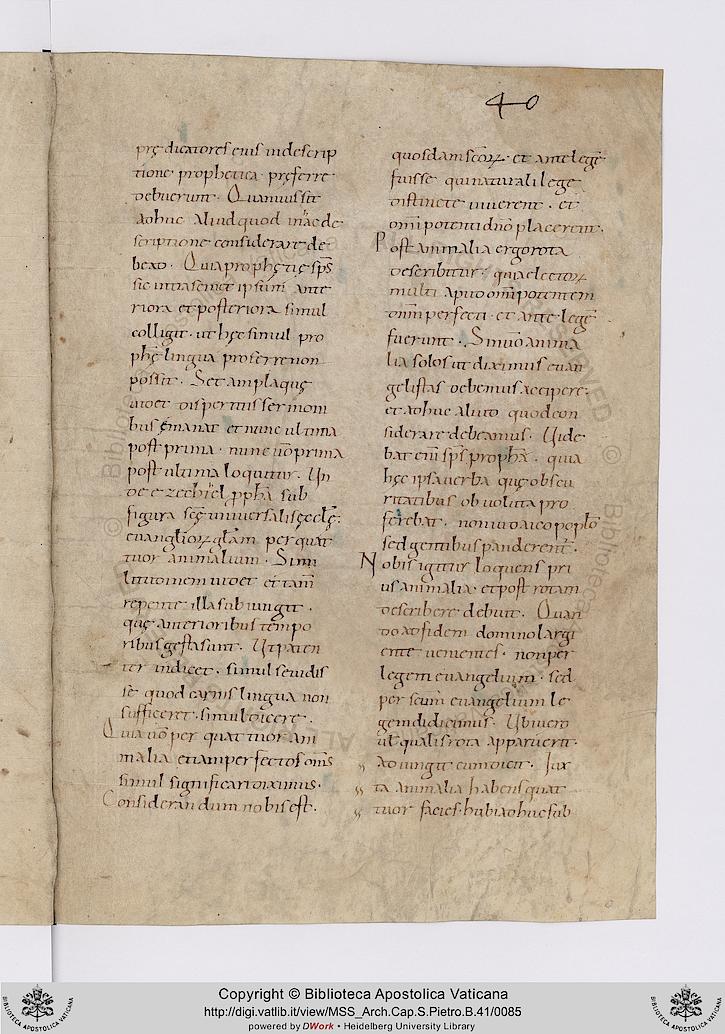 40
prędicatores eius in descrip
tione prophetica pręferre
debuerunt. Quamuis sit
adhuc aliud quod in hac de
scriptione considerare de
beao. Quia prophętię sps̄
sic intra semet ipsum ante
riora et posteriora simul
colligit. ut hęc simul pro
phę lingua proferre non
possit. Set amplaquę
videt dispertitis sermoni
bus emanat et nunc ultima
post prima. nunc ūo prima
post ultima loquitur. Un
de ezechiel ppha sub
figura scę universalis ęcłę:
evangliorꝝ głam per quat
tuor animalium. Simi
litudinem videt et tam
repente illa subiungit.
quę anterioribus tempo
ribus gesta sunt. Ut paten
ter indicet. simul se vidis
se quod carnis lingua non
sufficeret. simul dicere.
Quia ūo per quattuor ani
malia etiam perfectos oms̄
simul significari diximus.
Considerandum nobis est.
quosdam scōꝝ. et ante legē
fuisse qui naturali lege
distincte viverent. et
omīpotenti dn̄o placerent.
Post animalia ergo rota
describitur; quia electoꝝ
multi apud omīpotentem
omī perfecti. et ante legē
fuerunt. Sin ūo anima
lia solos ut diximus evan
gelistas debemus accipere.
et adhuc aliud quod con
siderare debeamus. Vide
bat enī sps̄ prophā. quia
hęc ipsa verba quę obscu
ritatibus obvoluta pro
ferebat. non iudaico poplō
sed gentibus panderent̄.
Nobis igitur loquens pri
us animalia. et post rotam
describere debuit. Quan
do ad fidem domino largi
ente venientes. non per
legem evangelium. sed
per scum evangelium le
gem didicimus. Ubi vero
ut̄ qualis rota apparuerit.
adiungit cum dicit. Iux
ta animalia habens quat
tuor facies. hubi adhuc sub
Copyright © Biblioteca Apostolica Vaticana
http://digi.vatlib.it/view/MSS_Arch.Cap.S.Pietro.B.41/0085
powered by DWork • Heidelberg University Library